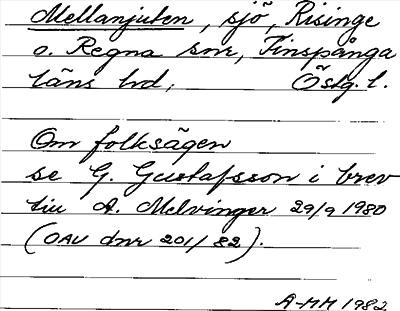 Mellanjuten, sjö, Risinge
o. Regna snr, Finspånga
läns hd, Östg. l.
Om folksägen
se G. Gustafsson i brev
till A. Melvinger 29/9 1980
(OAU dnr 201/82).
A-MH 1982